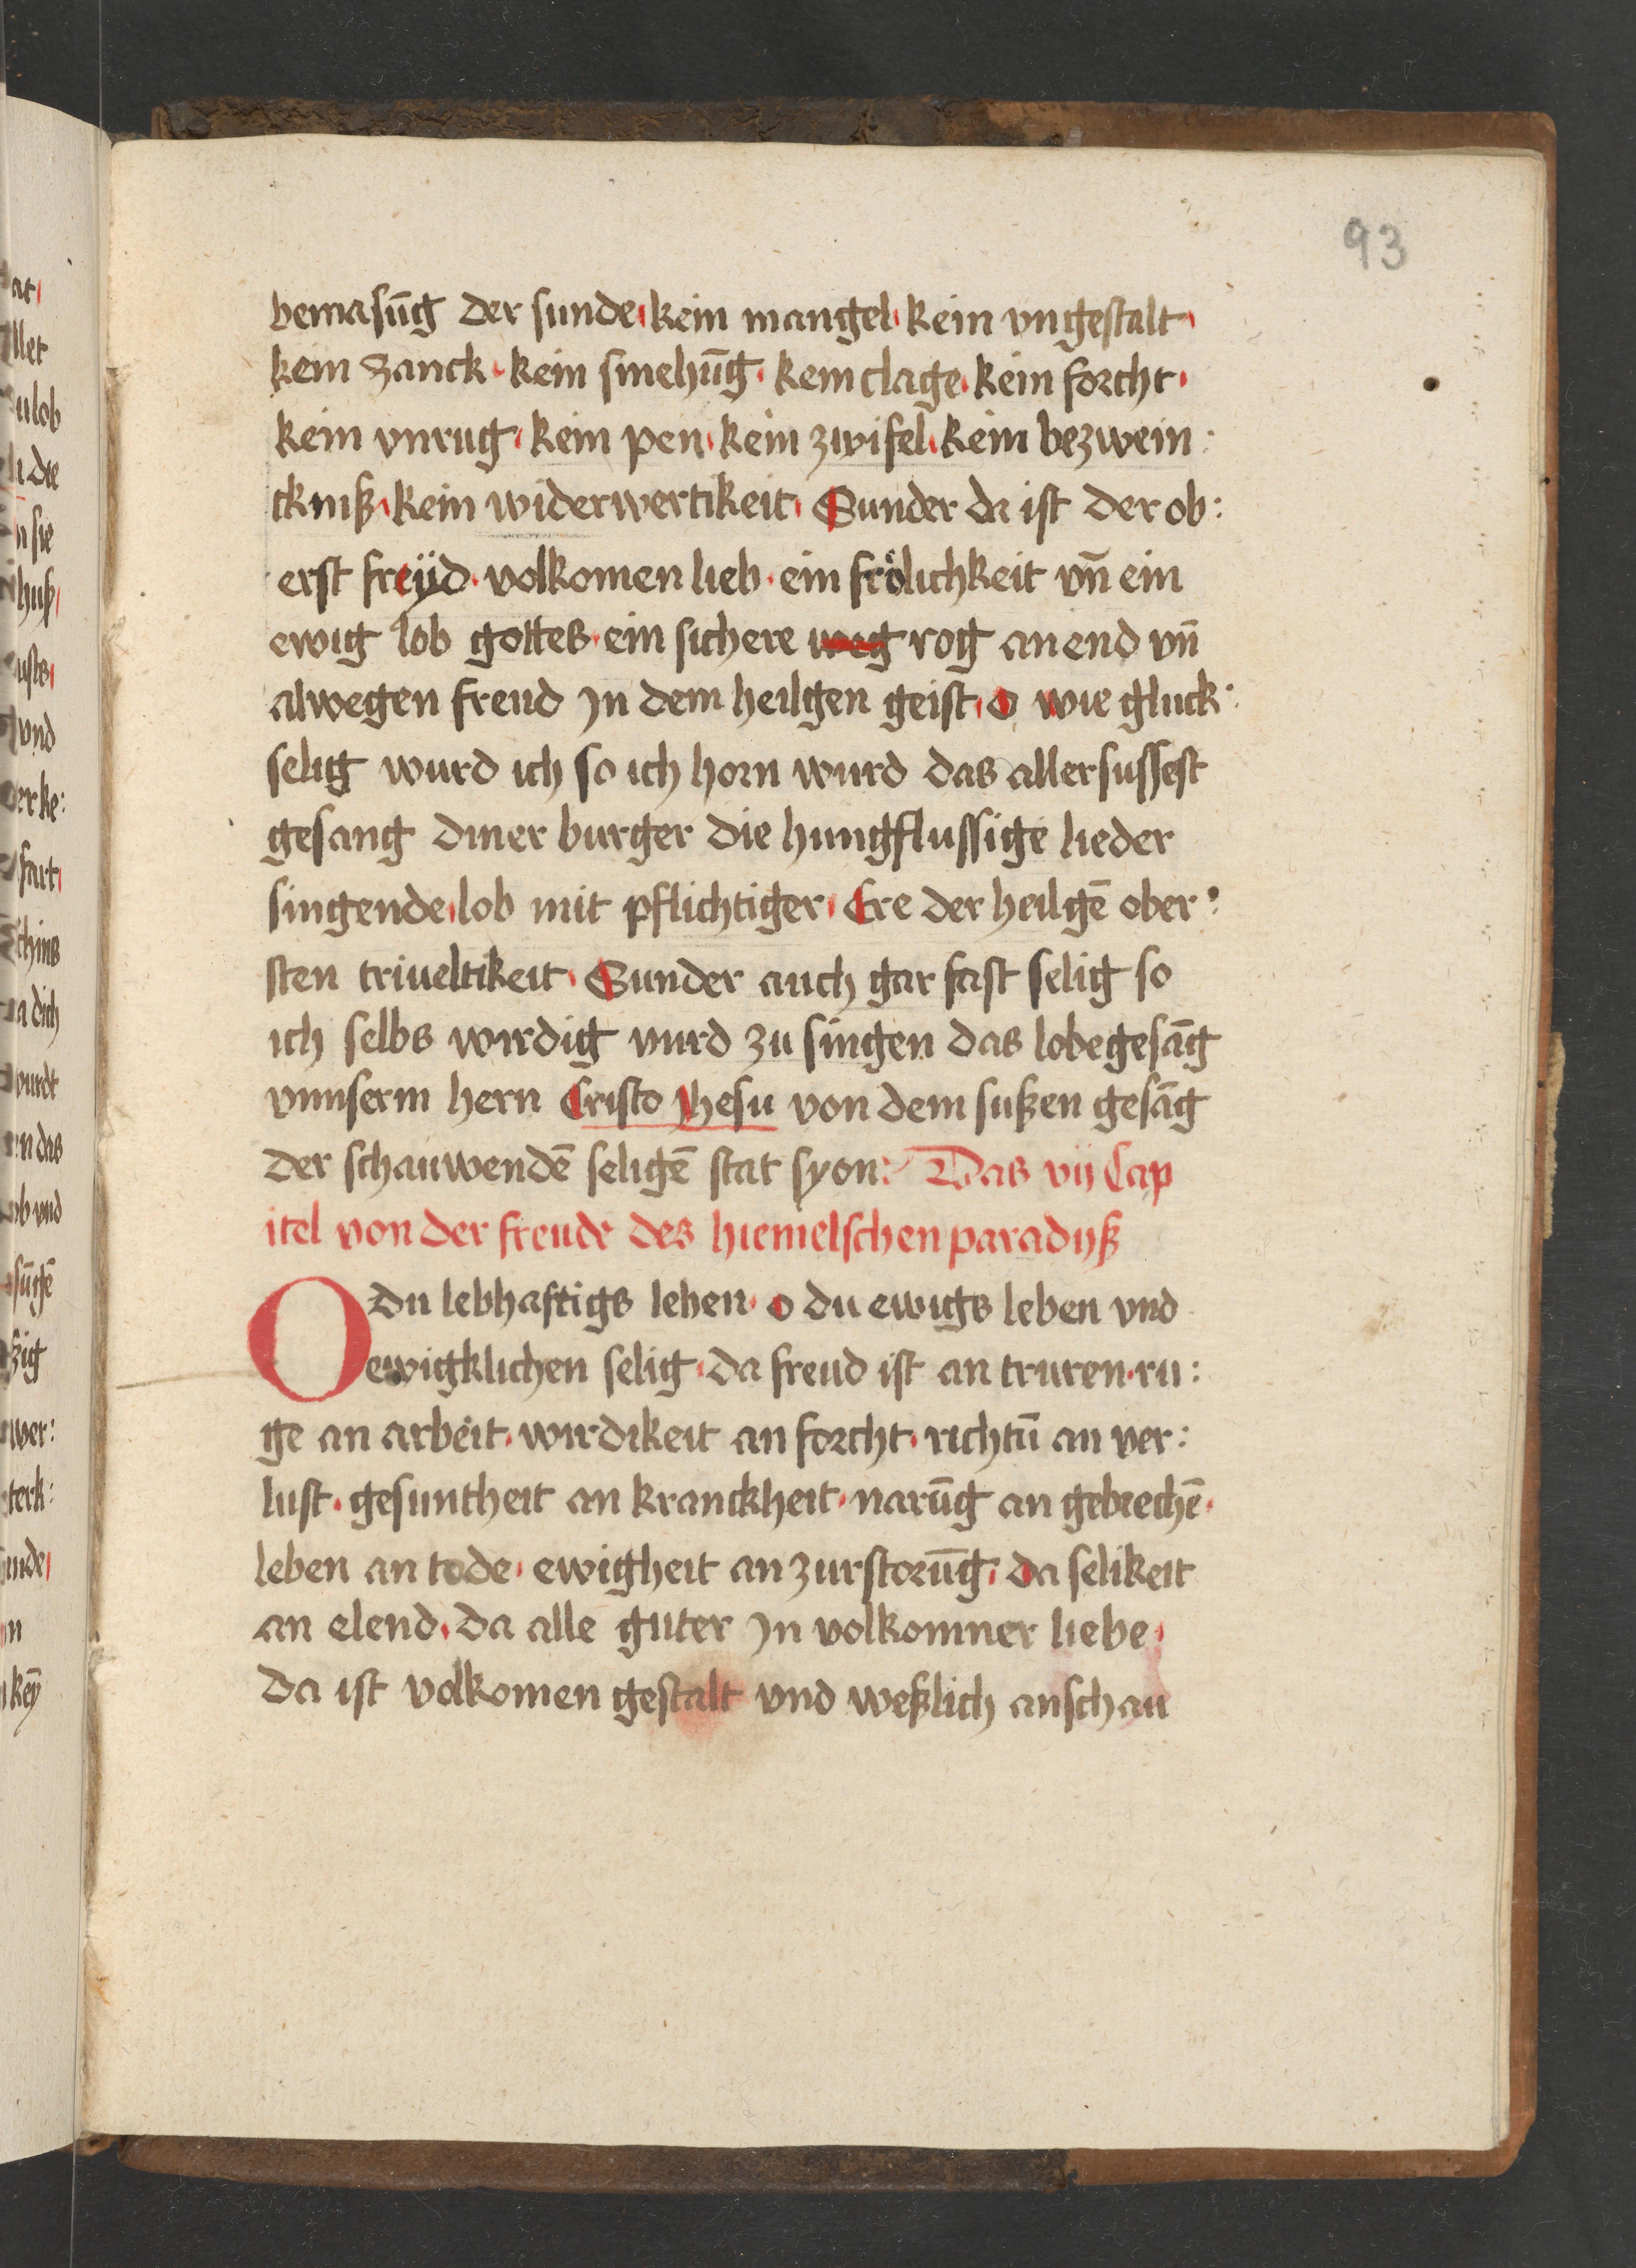 93
bemasūg der sunde kein mangel kein vngestalt
kein zanck · kein smehūg · kein clage · kein forcht ·
kein vnrug · kein pen · kein zwifel · kein bezwein :
tkniß · kein widerwertikeit · Sunder da ist der ob :
erst freÿd · volkomen lieb · ein frölichkeit vn̄ ein
ewig lob gottes · ein sichere weg rog an end vn̄
alwegen freud Jn dem heilgen geist · o wie gluck :
selig wurd ich so ich horn wurd das allersussest
gesang diner burger die hungflussige lieder
singende · lob mit pflichtiger · Ere der heilgē ober :
sten triueltikeit · Sunder auch gar fast selig so
ich selbs wirdig vurd zu singen das lobegesāg
vnnserm hern Cristo Jhesu von dem sußen gesāg
der schauwendē seligē stat syon : Das vij Cap
itel von der freude des hiemelschen paradyß
O du lebhaftigs leben · o du ewigs leben vnd
ewigklichen selig · da freud ist an truren · ru :
ge an arbeit · wirdikeit an forcht · richtū an ver :
lust · gesuntheit an kranckheit · narūg an gebrechē ·
leben an tode · ewigheit an zurstorūg · da selikeit
an elend · da alle guter Jn volkomner liebe ·
da ist volkomen gestalt vnd weßlich anschau